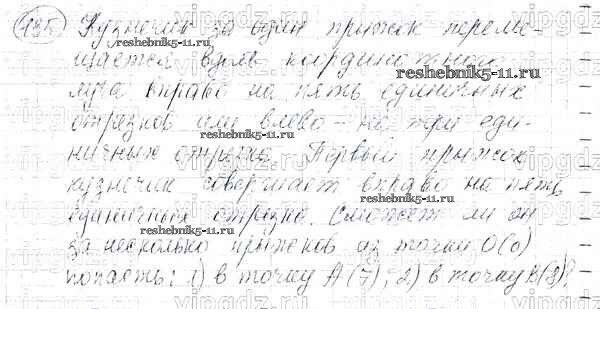 195. Кузнечик за один прыжок переме-
щается вдоль координатного
луча вправо на пять единичных
отрезков или влево - на три еди-
ничных отрезка. Первый прыжок
кузнечик совершает вправо на пять
единичных отрезка. Сможет ли он
за несколько прыжков из точки O(0)
попасть: 1) в точку A(7); 2) в точку B(8)?
reshebnik5-11.ru
reshebnik5-11.ru
reshebnik5-11.ru
reshebnik5-11.ru
reshebnik5-11.ru
vipgdz.ru